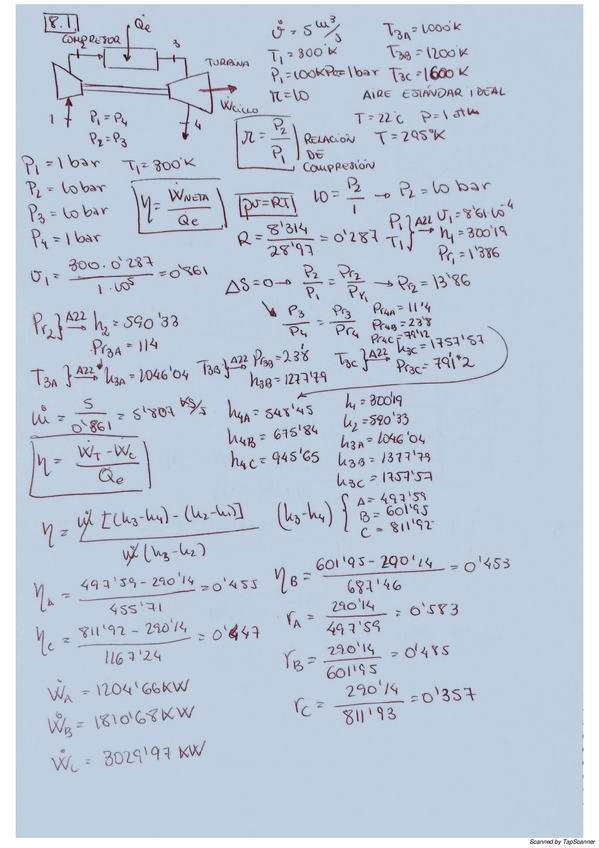 8.1
Q̇e
COMPRESOR
3
TURBINA
ẆCICLO
1
4
P1 = P4
P2 = P3
v̇ = 5 m³/s
T1 = 300°K
P1 = 100KPa = 1bar
π = 10
T3A = 1000°K
T3B = 1200°K
T3C = 1600°K
AIRE ESTÁNDAR IDEAL
T = 22°C P = 1 atm
T = 295°K
π = P2/P1
RELACIÓN DE COMPRESIÓN
P1 = 1 bar T1 = 300°K
P2 = 10 bar
P3 = 10 bar
P4 = 1 bar
η = ẆNETA/Q̇e
pv = RT
10 = P2/1 → P2 = 10 bar
R = 8'314/28'97 = 0'287
P1 T1 } A22 → v1 = 8'61·10⁻⁴
h1 = 300'19
Pr1 = 1'386
v1 = 300·0'287/1·10⁵ = 0'861
ΔS = 0 → P2/P1 = Pr2/Pr1 → Pr2 = 13'86
P3/P4 = Pr3/Pr4
Pr4A = 11'4
Pr4B = 23'8
Pr4C = 79'12
Pr2 } A22 → h2 = 590'33
Pr3A = 114
T3A } A22 → h3A = 1046'04
T3B } A22 → Pr3B = 238
h3B = 1277'79
T3C } A22 → h3C = 1757'57
Pr3C = 791'2
ṁ = 5/0'861 = 5'807 KG/s
h4A = 548'45
h4B = 675'84
h4C = 945'65
h1 = 300'19
h2 = 590'33
h3A = 1046'04
h3B = 1377'79
h3C = 1757'57
η = ẆT - ẆC/Q̇e
η = ṁ [(h3-h4) - (h2-h1)]/ṁ (h3-h2)
(h3-h4) { A = 497'59
B = 601'95
C = 811'92
ηA = 497'59 - 290'14/455'71 = 0'455
ηB = 601'95 - 290'14/687'46 = 0'453
ηC = 811'92 - 290'14/1167'24 = 0'447
rA = 290'14/497'59 = 0'583
rB = 290'14/601'95 = 0'485
rC = 290'14/811'93 = 0'357
ẆA = 1204'66 KW
ẆB = 1810'68 KW
ẆC = 3029'97 KW
Scanned by TapScanner